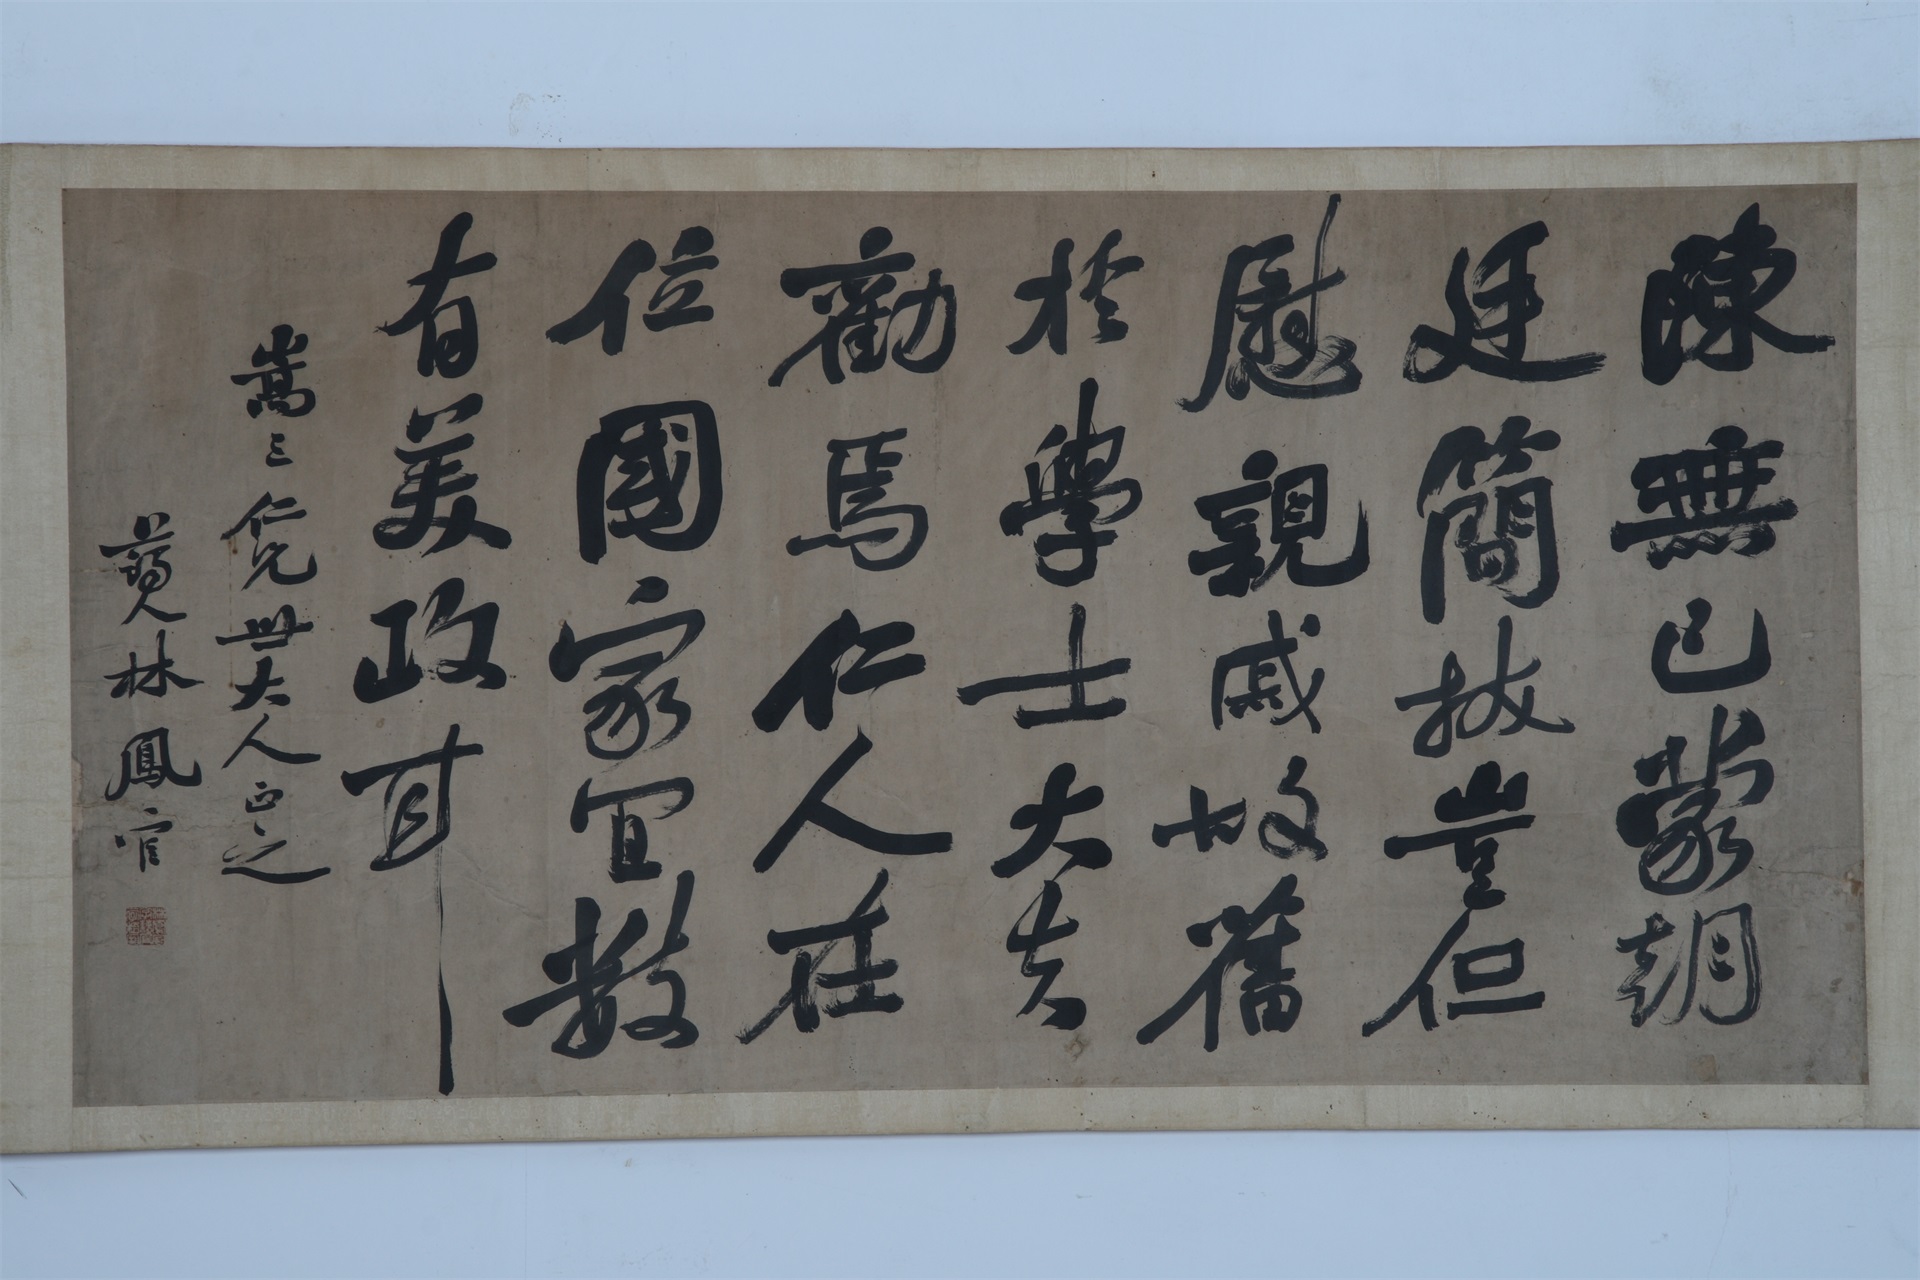 陳無己蒙朝
廷簡拔豈但
慰親戚故舊
於學士大夫
勸焉仁人在
位國家宜數
有美政耳
嵩三仁兄世大人正之
薌人林鳳官